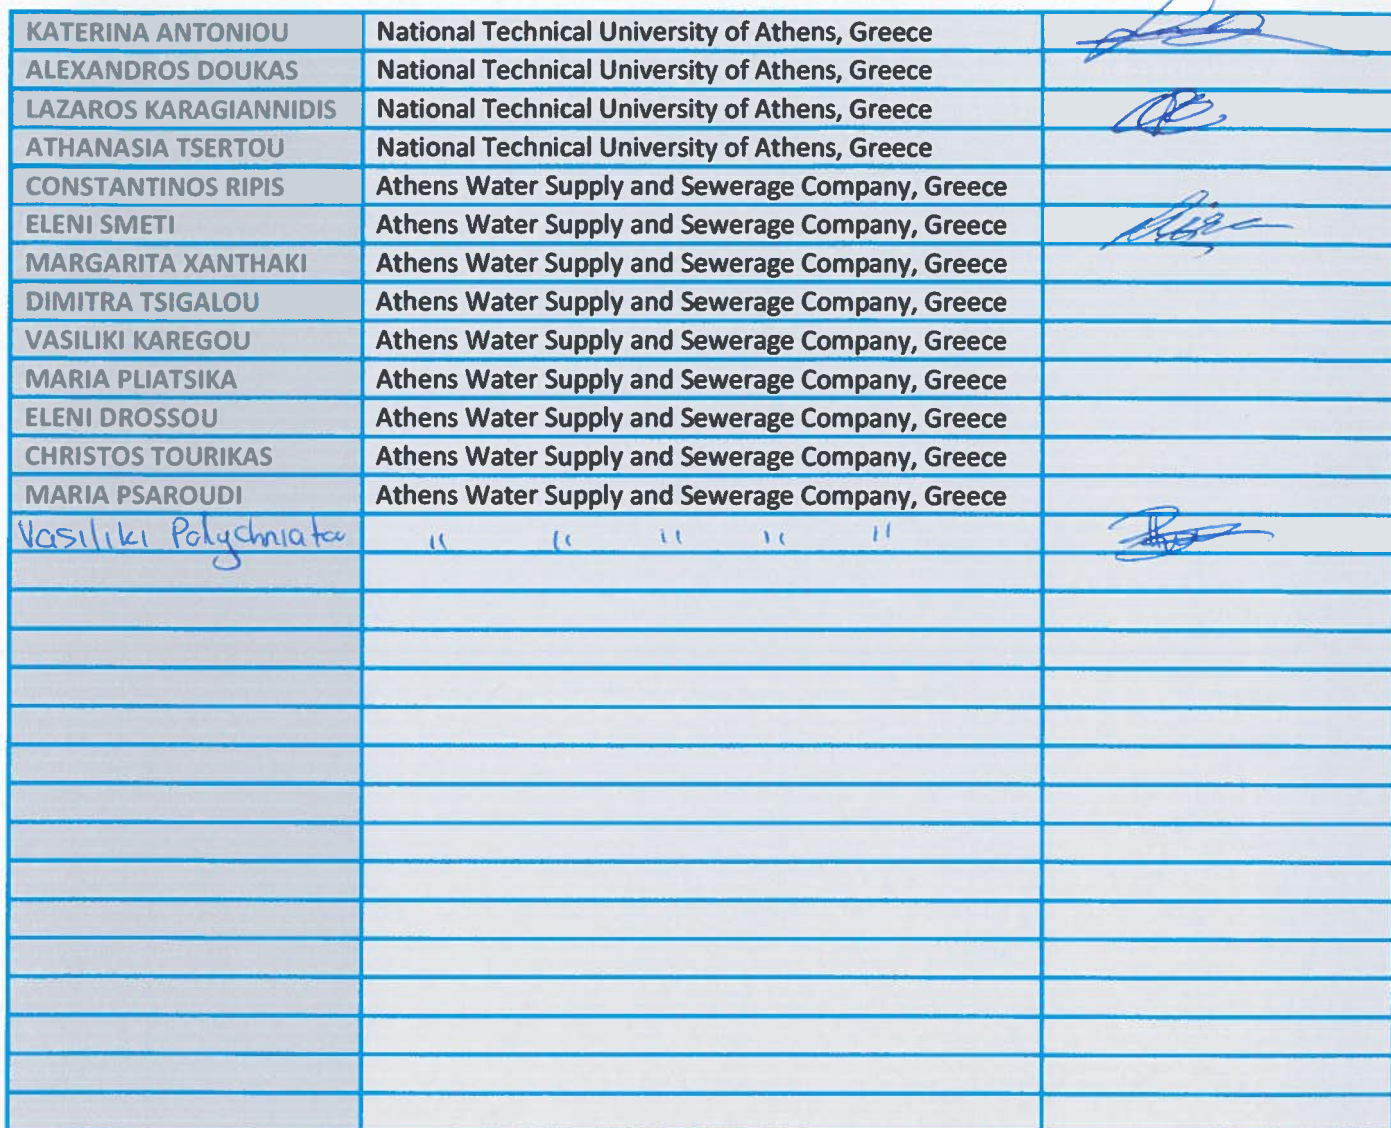 KATERINA ANTONIOU National Technical University of Athens, Greece
ALEXANDROS DOUKAS National Technical University of Athens, Greece
LAZAROS KARAGIANNIDIS National Technical University of Athens, Greece
ATHANASIA TSERTOU National Technical University of Athens, Greece
CONSTANTINOS RIPIS Athens Water Supply and Sewerage Company, Greece
ELENI SMETI Athens Water Supply and Sewerage Company, Greece
MARGARITA XANTHAKI Athens Water Supply and Sewerage Company, Greece
DIMITRA TSIGALOU Athens Water Supply and Sewerage Company, Greece
VASILIKI KAREGOU Athens Water Supply and Sewerage Company, Greece
MARIA PLIATSIKA Athens Water Supply and Sewerage Company, Greece
ELENI DROSSOU Athens Water Supply and Sewerage Company, Greece
CHRISTOS TOURIKAS Athens Water Supply and Sewerage Company, Greece
MARIA PSAROUDI Athens Water Supply and Sewerage Company, Greece
Vasiliki " " " " "